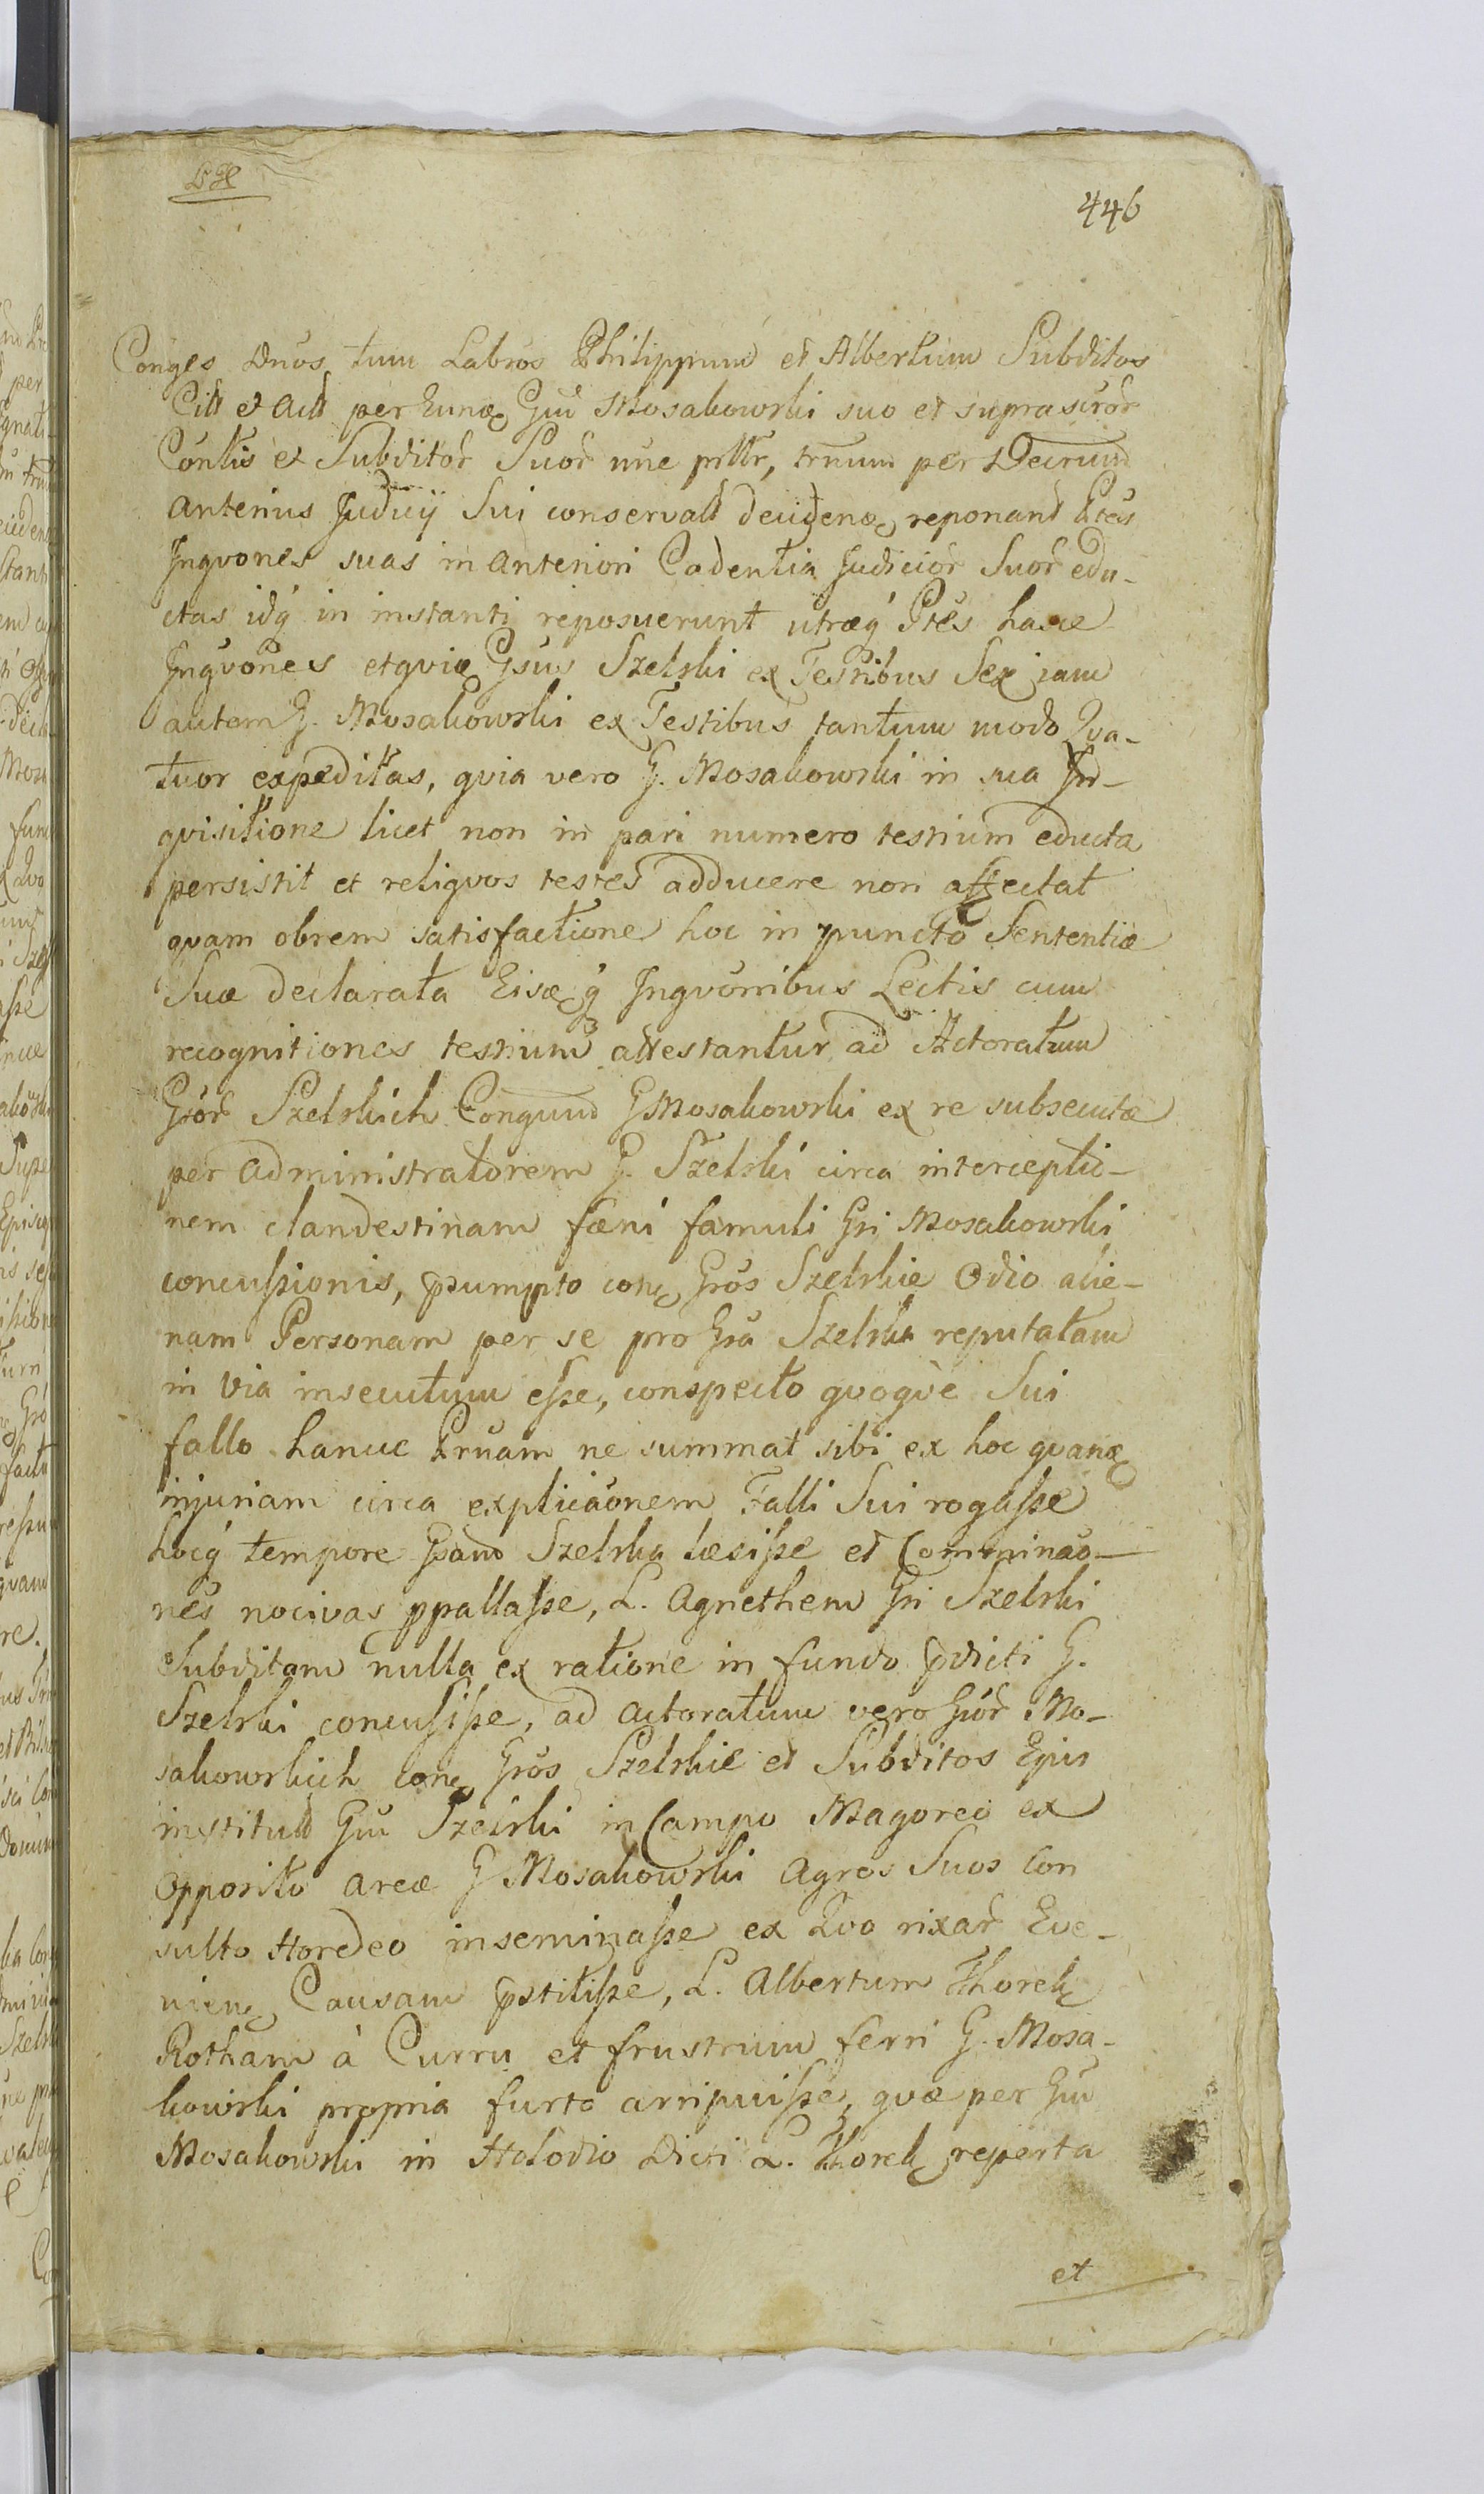 446
Conges Duos tum Labros Philippum et Albertum Subditos
Citt et Actt per Gnū Mosakowski suo et suprascror
Contlis et Subditor Suor nne prttr, trnum per Decrum
anterius Judicij Sui conservatt decidenæ reponant Ptes
Inqvones suas in anteriori Cadentia Judicior Suor edu-
ctas idq́ in instanti reposuerunt utræq́ Ptes hasce
Inqvones etqvia Gsus Szelski ex Testibus Sex jam
autem G. Mosakowski ex Testibus tantum modo Qva-
tuor expeditas, qvia vero G. Mosakowski in sua In-
qvisitione licet non in pari numero testium educta
persistit et reliqvos testes adducere non affectat
qvam obrem satisfactione hoc in puncto Sententiæ
Suæ declarata Eisq́ Inqvonibus Lectis cum
recognitiones testium attestantur ad Actoratum
Gsor Szelskich Conqnum G Mosakowski ex re subsecutæ
per administratorem G. Szelski circa interceptio-
nem clandestinam fœni famuli Gsi Mosakowski
concussionis, psumpto con Gros Szelskie Odio alie-
nam Personam per se pro Gsa Szelska reputatam
in via insecutum esse, conspecto qvoqvè Sui
fallo hancce Prnam ne summat sibi ex hoc qvanæ
injuriam circa explicaōnem Falli Sui rogasse
hocq́ tempore Gsam Szelska læsisse et Comminaō-
nes nocivas ppallasse, L. Agnethem Gsi Szelski
Subditam nulla ex ratione in fundo pdicti G.
Szelski concussisse, ad actoratum vero Gsor Mo-
sakowskich con Gros Szelskie et Subditos Ejus
institutt Gnū Szelski in Campo Magoreo ex
Opposito areæ G Mosakowski Agros Suos Con
sulto Hordeo inseminasse ex Qvo rixar Eve-
nien Causam pstitisse, L. Albertum Thorek
Rotham à Curru et frustrum ferri G. Mosa-
kowski propria furto arripuisse, qvæ per Gnū
Mosakowski in Holodio Dicti L. Thorek reperta
et